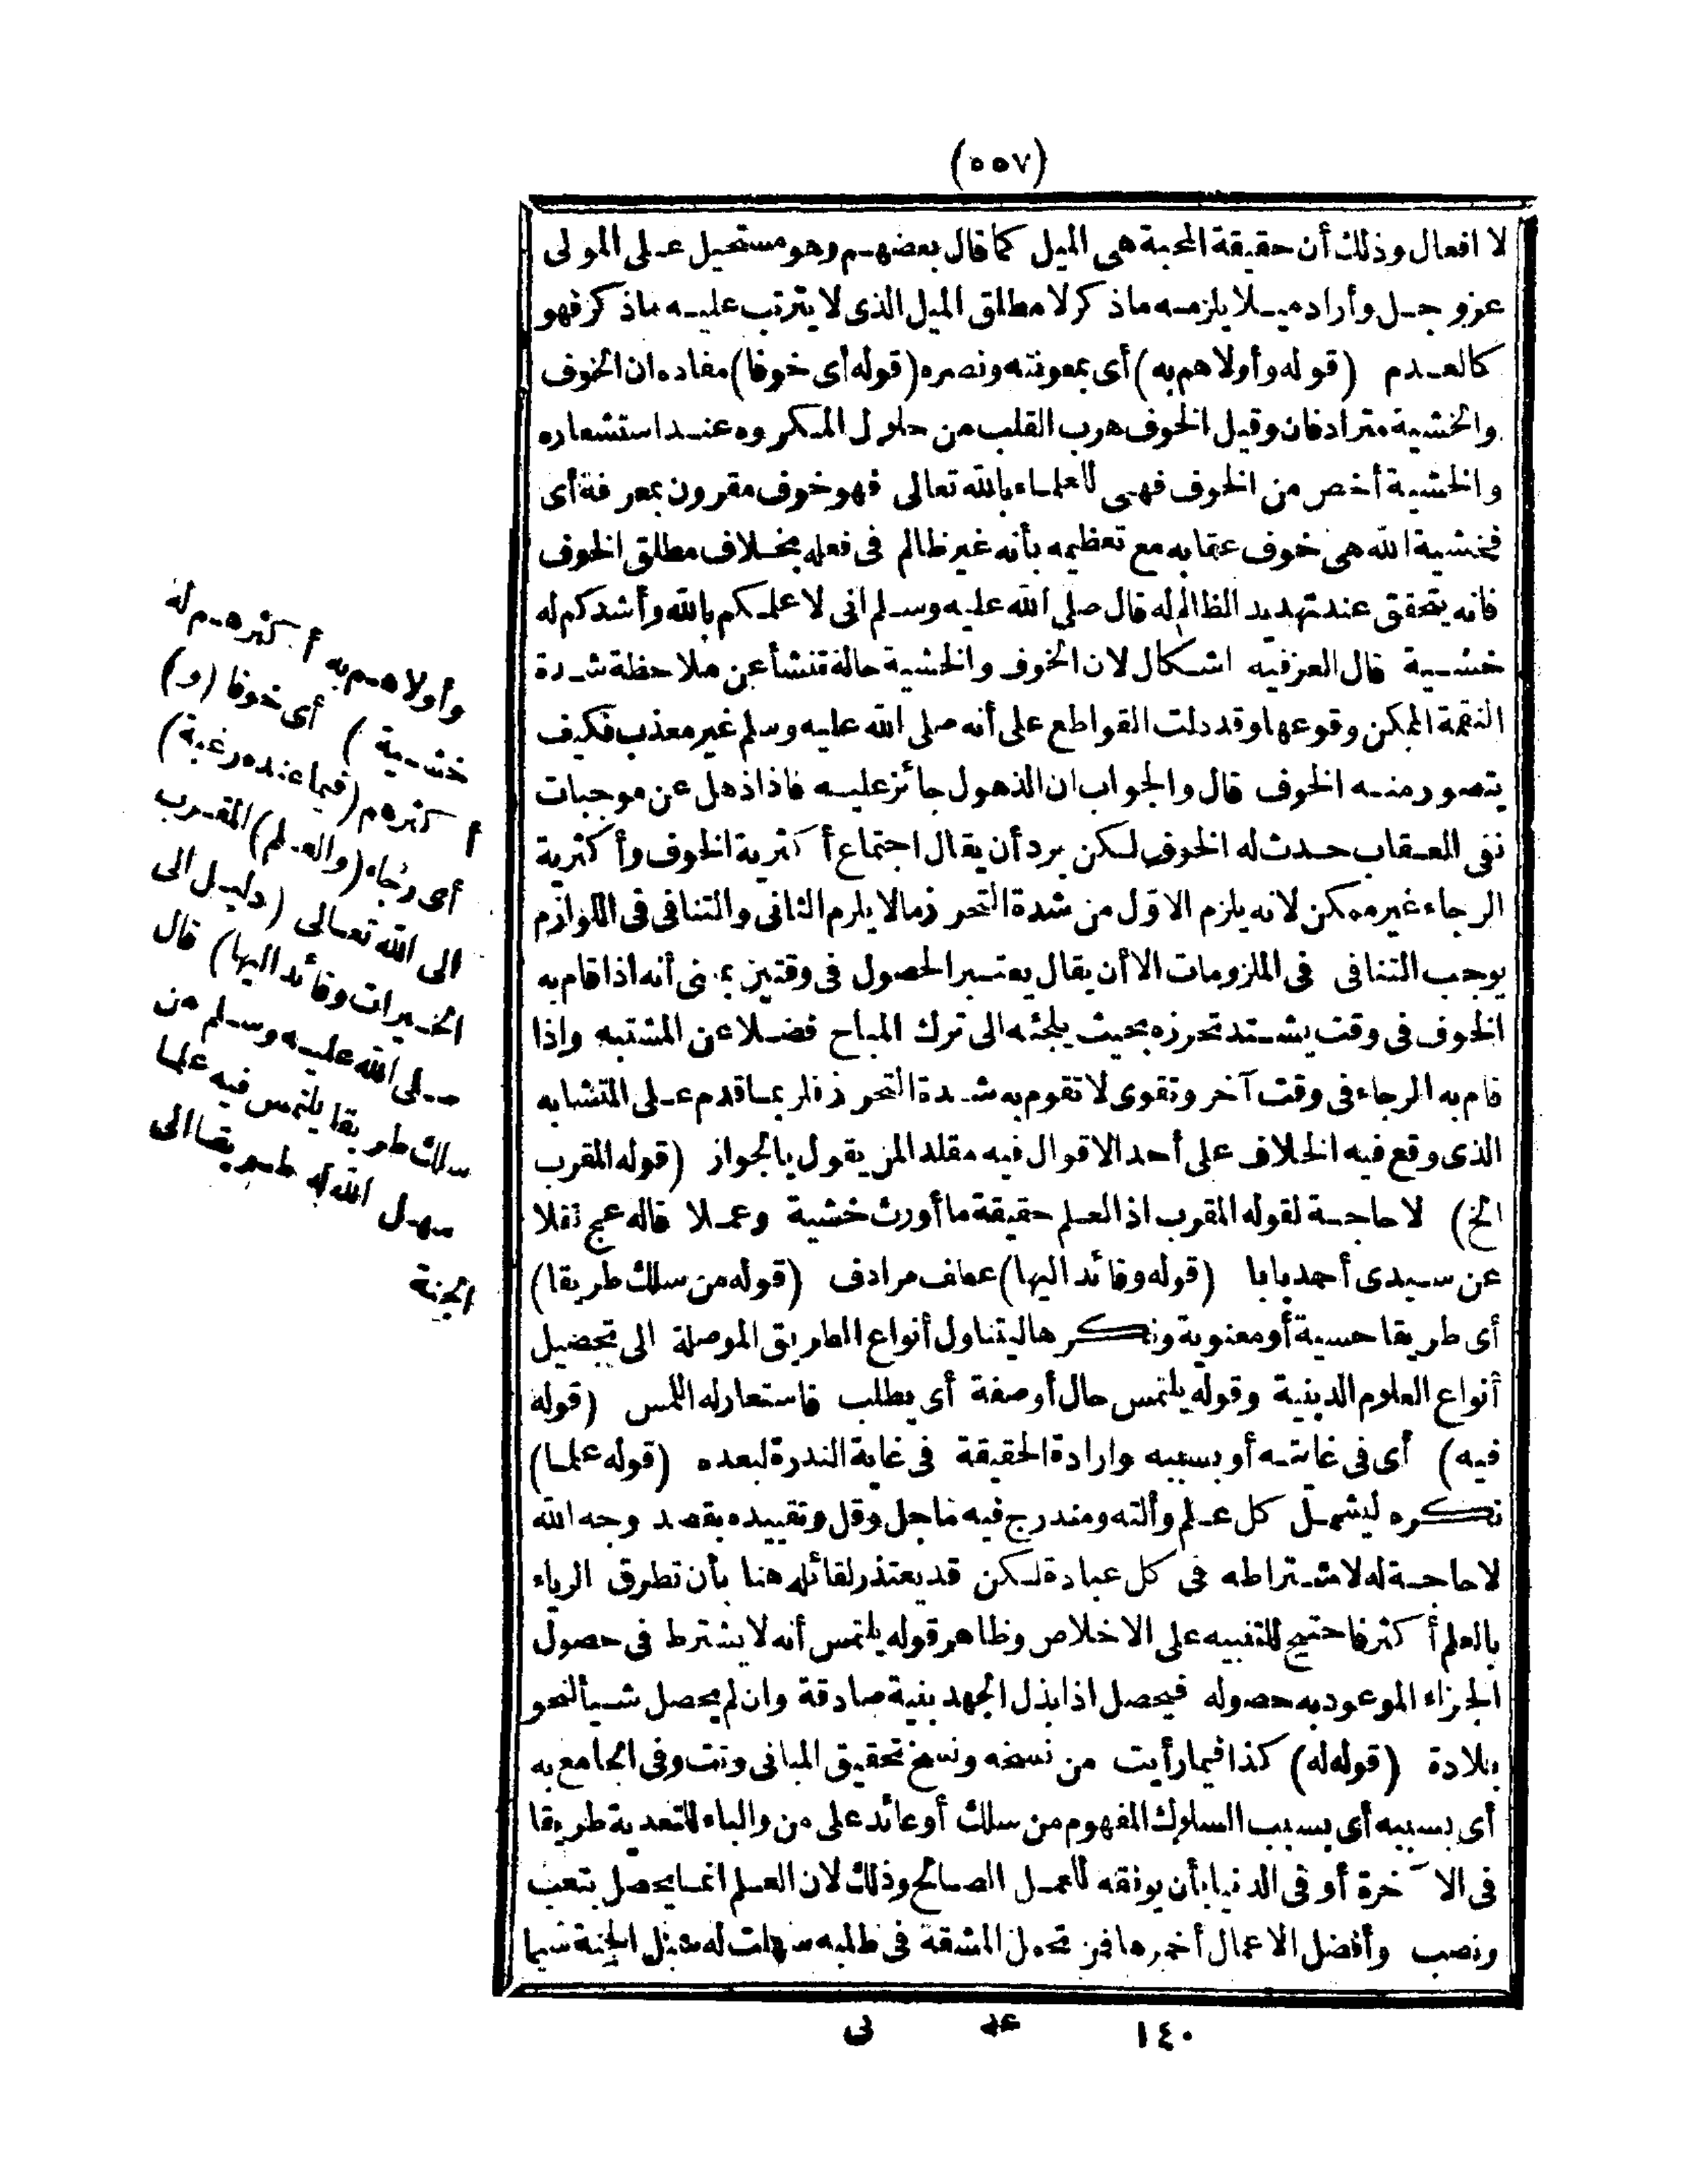 (٥٥٧)
لا افعال وذلك أن حقيقة المحبة هى الميل كما قال بعضهم وهو مستحيل على المولى
عزو جل وأراد ميلا يلزمه ماذكر لا مطلق الميل الذى لا يترتب عليه ماذكر فهو
كالعدم (قوله وأولاهم به) أى بمعونته ونصره (قوله أى خوفا) مفاده ان الخوف
والخشية مترادفان وقيل الخوف هرب القلب من حلول المكروه عند استشعاره
والخشية أخص من الخوف فهى للعلماء بالله تعالى فهو خوف مقرون بمعرفة أى
فخشية الله هى خوف عقابه مع تعظيمه بأنه غير ظالم فى فعله بخلاف مطلق الخوف
فانه يتحقق عند تهديد الظالم له قال صلى الله عليه وسلم انى لاعلمكم بالله وأشدكم له
خشية قال العز فيه اشكال لان الخوف والخشية حالة تنشأ عن ملاحظة شدة
النقمة الممكن وقوعها وقد دلت القواطع على أنه صلى الله عليه وسلم غير معذب فكيف
يتصور منه الخوف قال والجواب ان الذهول جائز عليه فاذا ذهل عن موجبات
نفى العقاب حدث له الخوف لكن يرد أن يقال اجتماع أكثرية الخوف وأكثرية
الرجاء غير ممكن لانه يلزم الاول من شدة التحرز مالا يلزم الثانى والتنافى فى اللوازم
يوجب التنافى فى الملزومات الا أن يقال يعتبر الحصول فى وقتين بمعنى أنه اذا قام به
الخوف فى وقت يشتد تحرزه بحيث يلجئه الى ترك المباح فضلا عن المشتبه واذا
قام به الرجاء فى وقت آخر وتقوى لا تقوم به شدة التحرز فلربما قدم على المتشابه
الذى وقع فيه الخلاف على أحد الاقوال فيه مقلد المن يقول بالجواز (قوله المقرب
الخ) لا حاجة لقوله المقرب اذ العلم حقيقة ما أورث خشية وعملا قاله عج نقلا
عن سيدى أحمد بابا (قوله وقائد اليها) عطف مرادف (قوله من سلك طريقا)
أى طريقا حسية أو معنوية ونكرها ليتناول أنواع الطريق الموصلة الى تحصيل
أنواع العلوم الدينية وقوله يلتمس حال أو صفة أى يطلب فاستعار له اللمس (قوله
فيه) أى فى غايته أو بسببه وارادة الحقيقة فى غاية الندرة لبعده (قوله علما)
نكره ليشمل كل علم وآلته ومندرج فيه ماجل وقل وتقييده بقصد وجه الله
لا حاجة له لاشتراطه فى كل عبادة لكن قد يعتذر لقائله هنا بأن تطرق الرياء
بالعلم أكثر فاحتيج للتنبيه على الاخلاص وظاهر قوله يلتمس أنه لا يشترط فى حصول
الجزاء الموعود به حصوله فيحصل اذا بذل الجهد بنية صادقة وان لم يحصل شيأ لنحو
بلادة (قوله له) كذا فيما رأيت من نسخه ونسخ تحقيق المبانى وتت وفى الجامع به
أى بسببه أى بسبب السلوك المفهوم من سلك أو عائد على من والباء للتعدية طريقا
فى الآخرة أو فى الدنيا بأن يوفقه للعمل الصالح وذلك لان العلم انما يحصل بتعب
ونصب وأفضل الاعمال أحمزها فمن تحمل المشقة فى طلبه سهلت له سبل الجنة سيما
١٤٠ عد نى
وأولاهم به أكثرهم له
خشية) أى خوفا (و)
أكثرهم (فيما عنده رغبة)
أى رجاء (والعلم) المقرب
الى الله تعالى (دليل الى
الخيرات وقائد اليها) قال
صلى الله عليه وسلم من
سلك طريقا يلتمس فيه علما
سهل الله له طريقا الى
الجنة